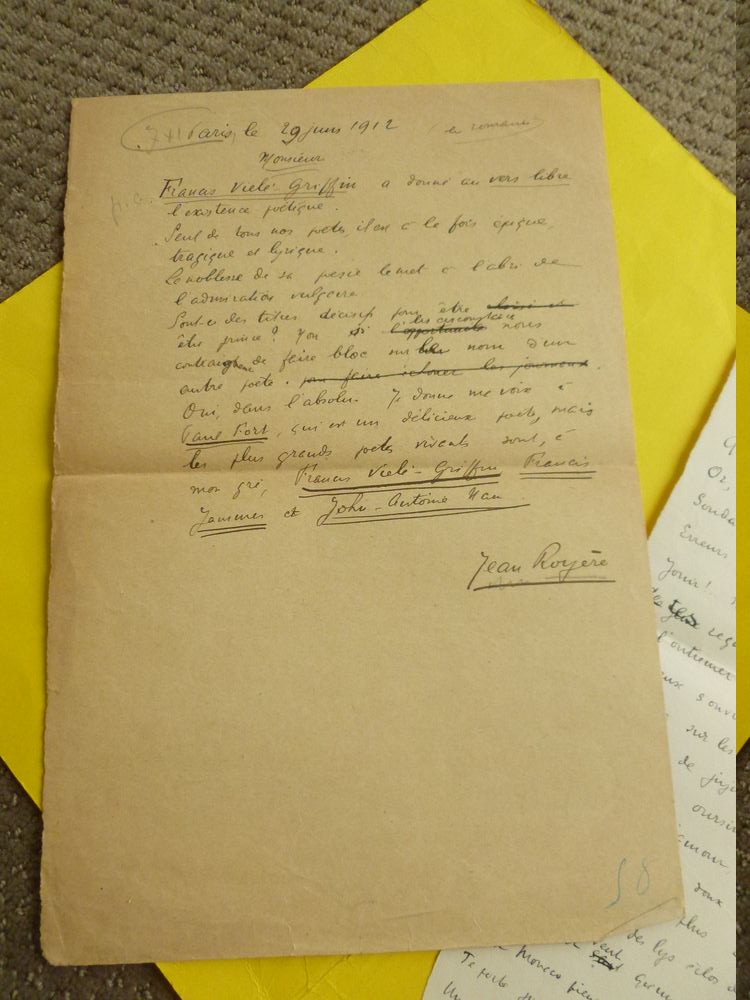 Paris, le 29 juin 1912 (en romains)
Monsieur
p.c. Francis Vielé-Griffin a donné au vers libre
l'existence poétique.
Seul de tous nos poètes, il est à la fois épique,
tragique et lyrique.
La noblesse de sa poésie le met à l'abri de
l'admiration vulgaire.
Sont-ce des titres décisifs pour être
être prince? Non si les circonstances nous
de faire bloc sur le nom d'un
autre poète. pour faire échouer les journaux.
Oui, dans l'absolu. Je donne ma voix à
Paul Fort, qui est un délicieux poète, mais
les plus grands poètes vivants sont, à
mon gré, Francis Vielé-Griffin Francis
Jammes et John-Antoine Nau
Jean Royère
58
Or,
Erreurs
Jouir!
l'outremer
sur les
de juju
amour,
doux
plus
des lys
Monaco